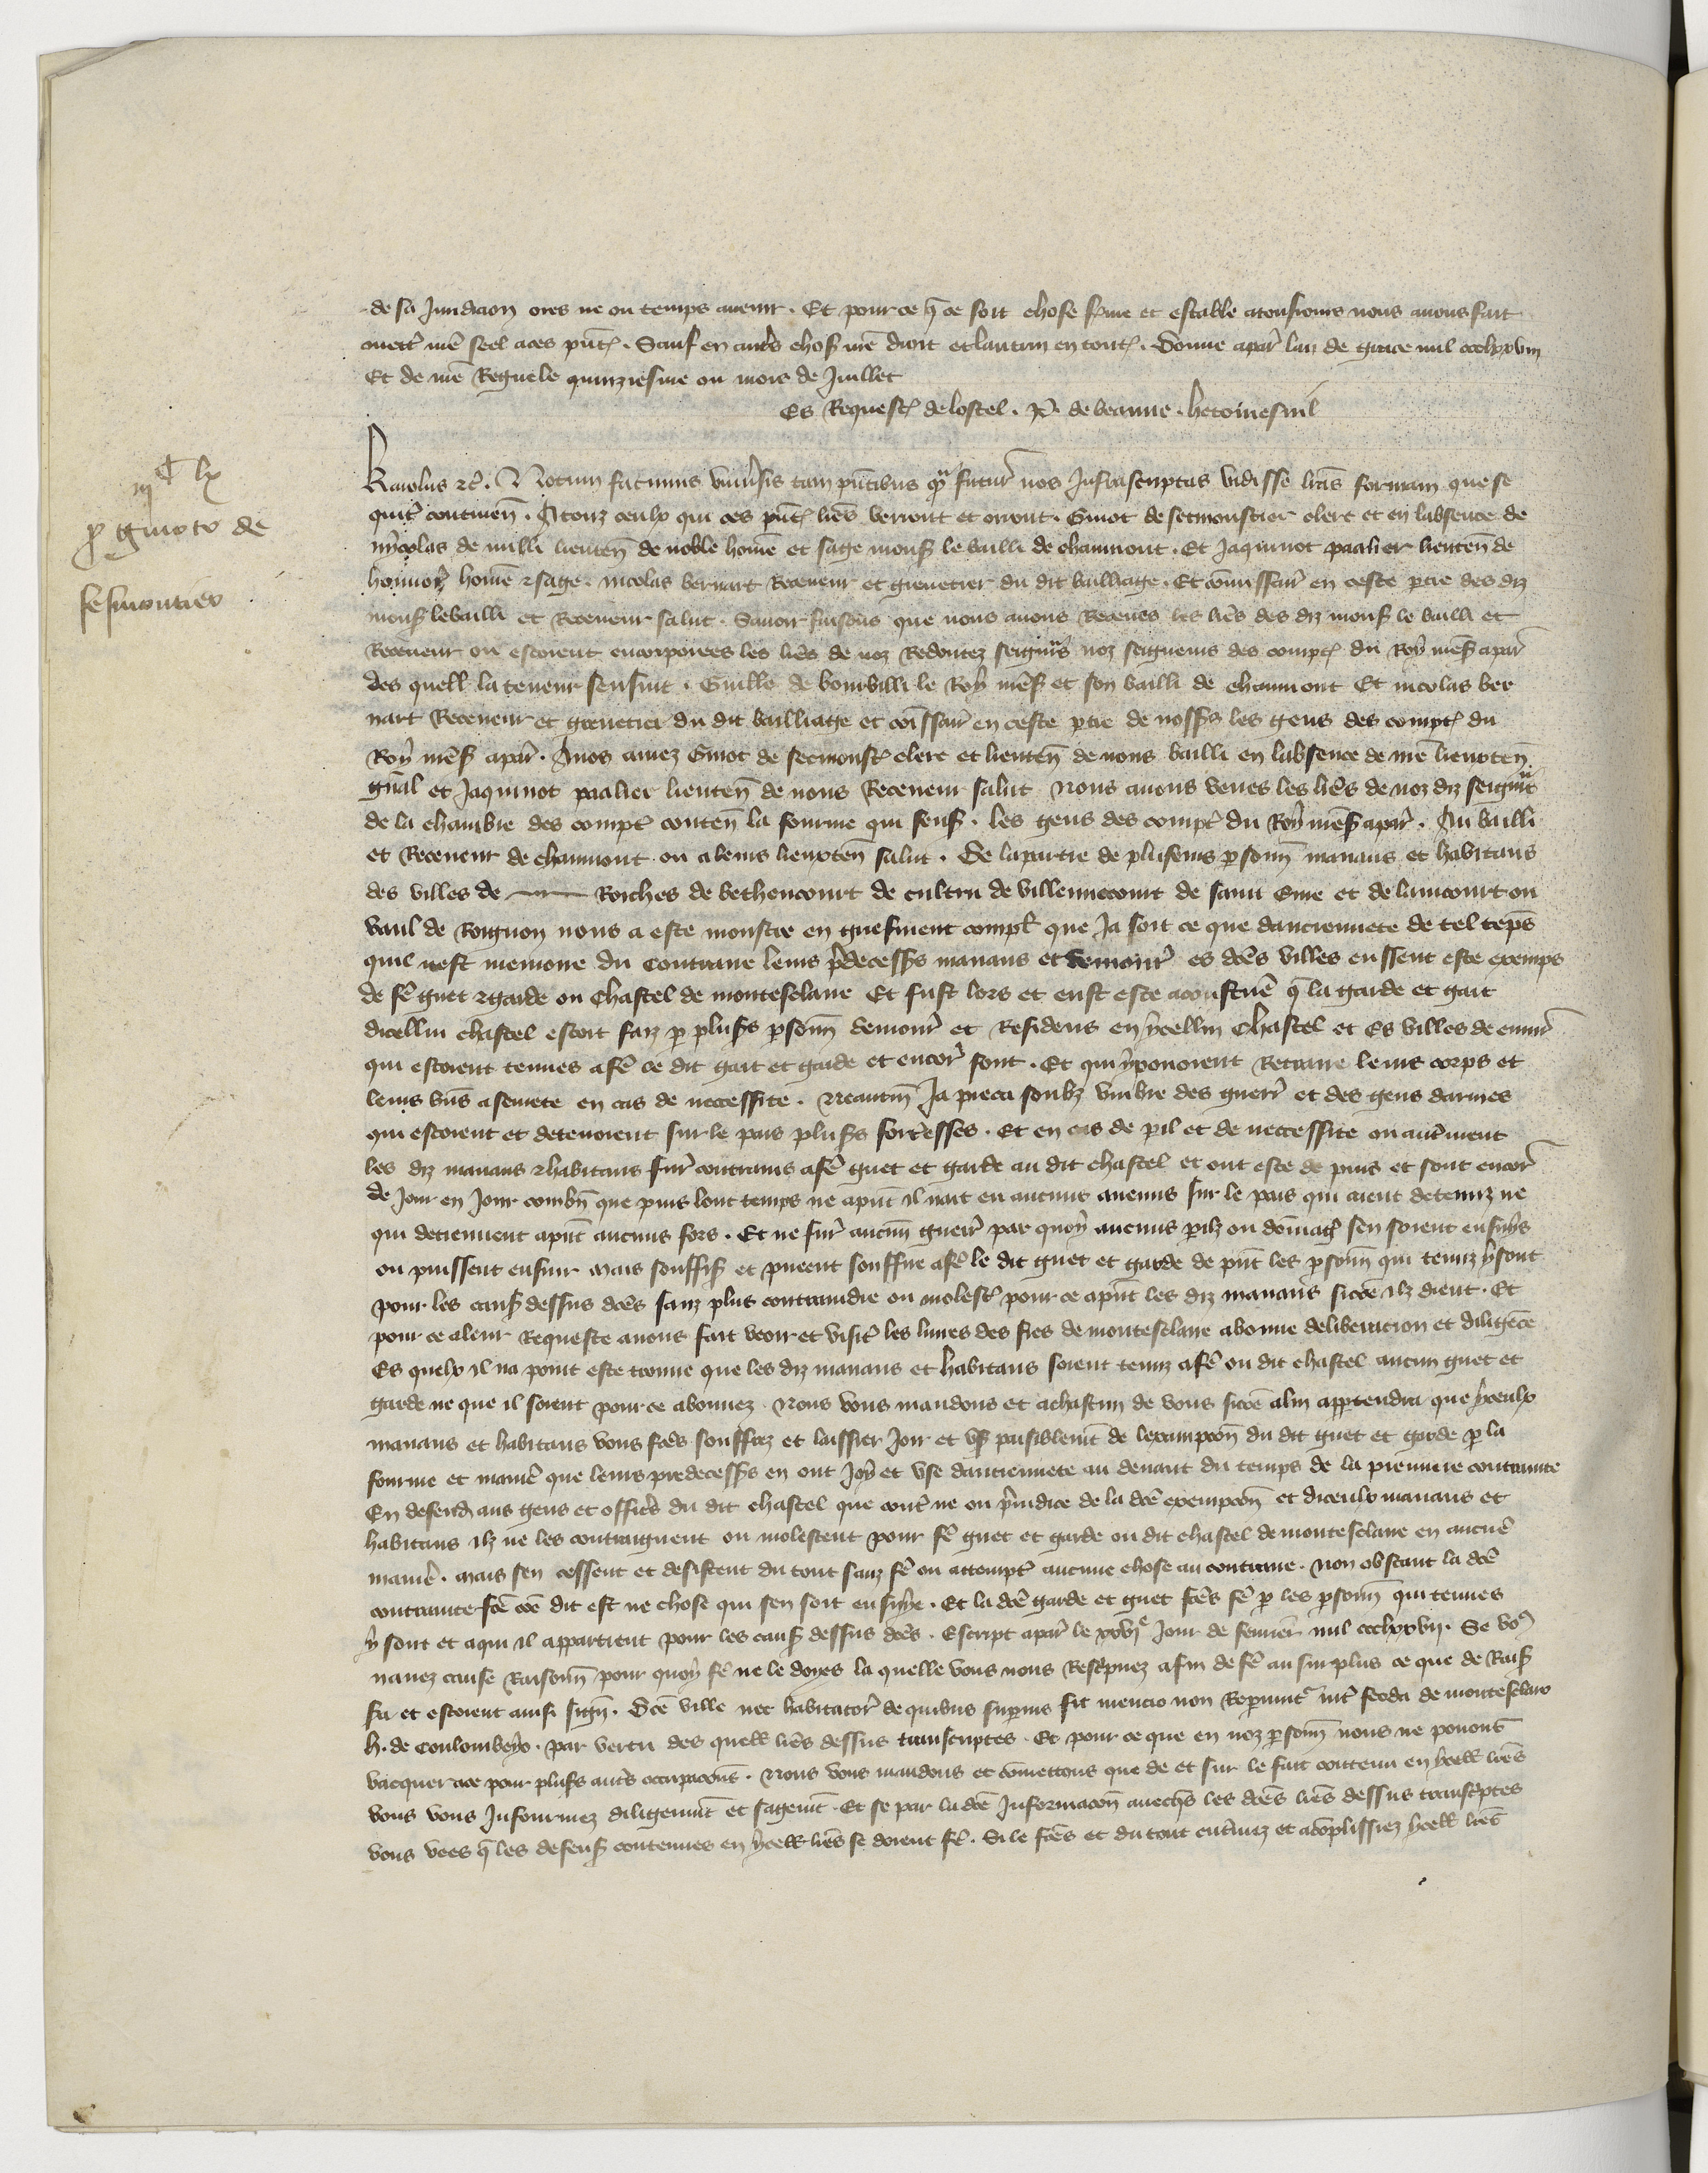 de sa Juridicion ores ne ou temps avenir . Et pour ce q̄ ce soit chose ferme et estable atousiours nous avons fait
mettr̄ nr̄e seel a ces pñt . Sauf en autr̄s chos nr̄e droit et lautrui en tout . Donne a par̄ lan de grace mil ccclxxviii
Et de nr̄e Regne le quinziesme ou mois de Juillet
Es Requestes de lostel . P. de beaune . hetomesnil
iii C lx
p guioto de
sesmoutier
Karolus &c̄ . Notum facimus univ̄sis tam pn̄tibus qz futur̄ nos Infrascriptas vidisse lr̄as formam que se
quit̄ continen̄ . A touz ceulx qui ces pñt lr̄es verront et orront . Guiot de semoustier clerc et en labsence de
nicolas de nulli lieuten̄ de noble hom̄e et sage mons le bailli de chaumont . Et Jaquinot paalier lieuten̄ de
honnor̄ hom̄e & sage . nicolas bernart Receveur et grenetier du dit bailliage . Et com̄issair̄ en ceste p̄tie des diz
mons le bailli et Receveur salut . Savoir faisons que nous avons Receues les lr̄es des diz mons le bailli et
Receveur ou estoient encorporees les lr̄es de noz Redoutez seign̄rs noz seigneurs des compt du Roy nr̄es a par̄
des quell la teneur sensuit . Guille de bourbilli le Roy nr̄es et son bailli de chaumont Et nicolas ber
nart Receveur et grenetier du dit bailliage et com̄issair̄ en ceste p̄tie de noss̄rs les gens des compt du
Roy nr̄es a par̄ . A nos amez Guiot de semoust clerc et lieuten̄ de nous bailli en labsence de nr̄e lieuten̄
gn̄al et Jaquinot paalier lieuten̄ de nous Receveur salut Nous avons veues les lr̄es de noz diz seign̄rs
de la chambre des compt conten̄ la fourme qui sens . les gens des compt du Roy nr̄es a par̄ . Au bailli
et Receveur de chaumont ou a leurs lieuxten̄ salut . De la partie de pluseurs p̄sonn̄ manans et habitans
des villes de Roiches de bethencourt de cultru de villennecourt de saint Eme et de laincourt ou
vaul de Roignon nous a este monstre en griefment compl̄ que Ja soit ce que danciennete de tel teps̄
quil nest memoire du contraire leurs p̄decess̄rs manans et demour̄ es dc̄es villes eussent este exemps
de fē guet & garde ou Chastel de montesclaire Et fust lors et eust este acoustum̄e q̄ la garde et gait
dicellui chastel estoit faiz p plus̄rs p̄sonn̄ demour̄ et Residens en ycellui Chastel et Es villes de envir̄
qui estoient tenues a fē ce dit gait et garde et encor̄ sont . Et qui y povoient Retraire leurs corps et
leurs biēs a seurete en cas de necessite . Neautm̄ Ja pieca soubz umbre des guerr̄ et des gens darmes
qui estoient et detenoient sur le pais plus̄rs forteresses . Et en cas de p̄il et de neccessite ou autr̄ment
les diz manans & habitans fur̄ contrains a fē guet et garde au dit chastel et ont este de puis et sont encor̄
de Jour en Jour combn̄ que puis lonc temps ne apn̄t il nait eu aucuns anemis sur le pais qui aient detenuz ne
qui detiennent apn̄t aucuns fors . Et ne fur̄ aucun̄ guerr̄ par quoy aucuns p̄ilz ou dom̄aḡ sen soient ensuivis
ou puissent ensuir mais souffis et pueent souffire a fē le dit guet et garde de pn̄t les p̄sonn̄ qui tenuz y sont
pour les caus dessus dc̄es sanz plus contraindre ou molest pour ce apn̄t les diz manans sicōe ilz dient . Et
pour ce a leur Requeste avons fait veoir et visit̄ les livres des fies de montesclaire a bonne deliberacion et diligēce
Es quelx il na point este trouve que les diz manans et habitans soient tenuz a fē ou dit chastel aucun guet et
garde ne que il soient pour ce abonnez . Nous vous mandons et a chascun de vous sicōe a lui appartendra que yceulx
manans et habitans vous fac̄s souffrez et laissier Joir et us paisiblem̄t de lexempcōn du dit guet et garde p la
fourme et manier̄ que leurs predecess̄rs en ont Joy et use danciennete au devant du temps de la premiere contrainte
En defend̄ aus gens et offic̄rs du dit chastel que contr̄ ne ou p̄iudice de la dc̄e exempcōn et diceulx manans et
habitans ilz ne les contraignent ou molestent pour fē guet et garde ou dit chastel de montesclaire en aucun̄e
manier̄ . mais sen cessent et desistent du tout sanz fē ou attempt̄ aucune chose au contraire . non obstant la dc̄e
contrainte fc̄e cōe dit est ne chose qui sen soit ensuye . Et la dc̄e garde et guet fc̄es fē p les p̄sonn̄ qui tenues
y sont et a qui il appartient pour les caus dessus dc̄es . Escript a par̄ le xxvie Jour de fevrier mil ccclxxvii . Se vo9
navez cause Raisonn̄ pour quoy fē ne le doyes la quelle vous nous Rescripvez afin de fē au surplus ce que de Rais
sa et estoient ainsi sign̄ . Dc̄e ville nec habitator̄ de quibus sup̄ius fit mencio non Rep̄iunt̄ int̄ feoda de monteclaro
h . de Coulombeyo . par vertu des quell lr̄es dessus transcriptes . Et pour ce que en noz p̄sonn̄ nous ne povons
vacquer a ce pour plus̄rs autr̄s occupacōns . Nous vous mandons et com̄ettons que de et sur le fait contenu en ycell lr̄es
vous vous Infourmez diligenm̄t et sagem̄t . Et se par la dc̄e Informacōn avechs les dc̄es lr̄es dessus transcr̄ptes
vous vees q̄ les defens contenues en ycell lr̄es se doient fē . Si le fc̄es et du tout enterinez et acomplissiez ycell lr̄es